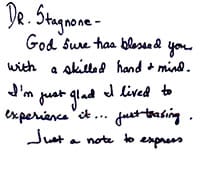 Dr. Stagnone -
God sure has blessed you
with a skilled hand & mind.
I'm just glad I lived to
experience it... just teasing.
Just a note to express